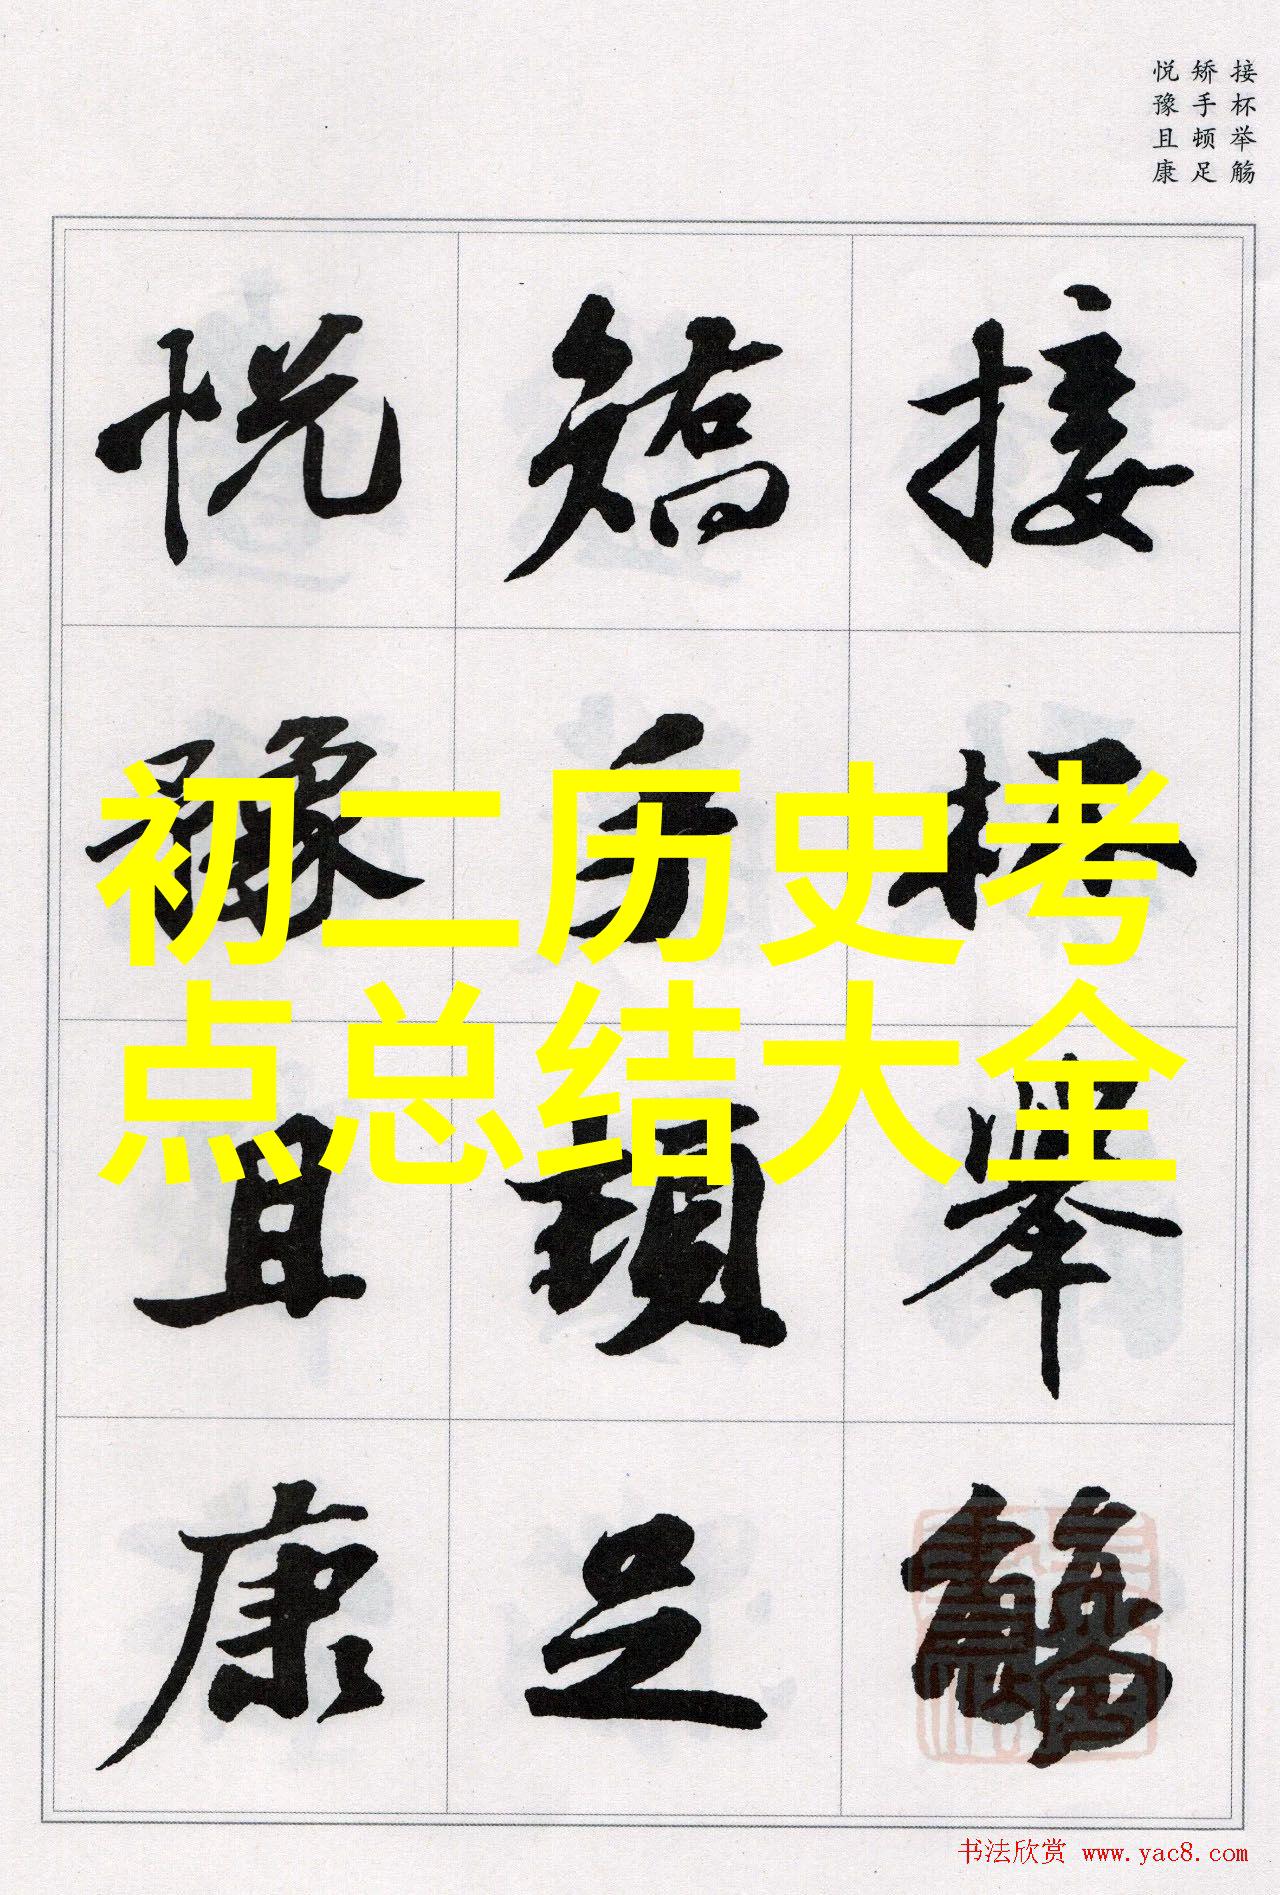 接杯举觞
矫手顿足
悦豫且康
接杯举觞
矫手顿足
悦豫且康
初二历史考
点总结大全
书法欣赏 www.yac8.com